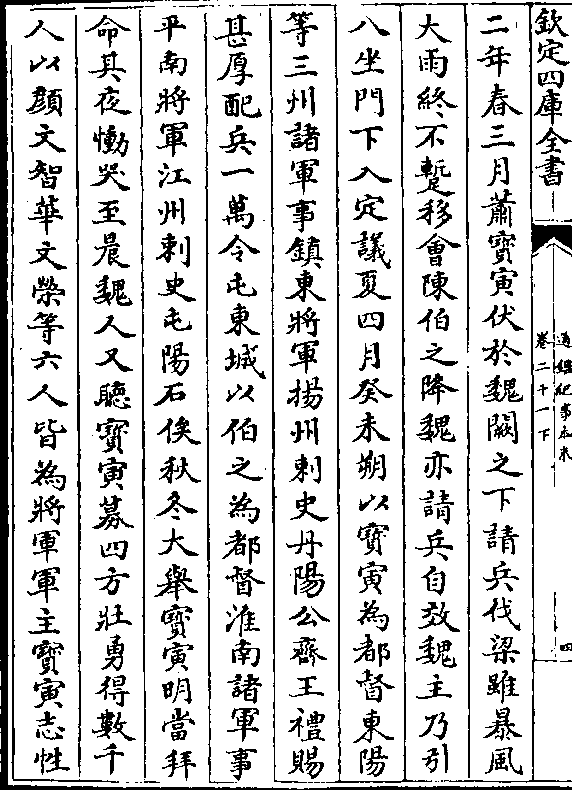 欽定四庫全書
通鑑紀事本末
卷二十一下
四
二年春三月蕭寶寅伏於魏闕之下請兵伐梁雖暴風
大雨終不蹔移會陳伯之降魏亦請兵自效魏主乃引
八坐門下入定議夏四月癸未朔以寶寅為都督東陽
等三州諸軍事鎮東將軍揚州刺史丹陽公齊王禮賜
甚厚配兵一萬令屯東城以伯之為都督淮南諸軍事
平南將軍江州刺史屯陽石俟秋冬大舉寶寅明當拜
命其夜慟哭至晨魏人又聽寶寅募四方壯勇得數千
人以顔文智華文榮等六人皆為將軍軍主寶寅志性